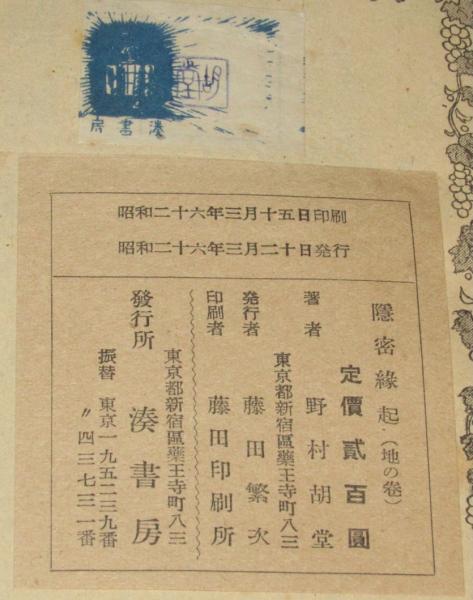 胡堂
湊書房
昭和二十六年三月十五日印刷
昭和二十六年三月二十日発行
隱密緣起(地の卷)
定價貳百圓
著者 野村胡堂
東京都新宿區藥王寺町八三
発行者 藤田繁次
印刷者 藤田印刷所
東京都新宿區藥王寺町八三
發行所 湊書房
振替 東京一九五二三九番
〃四三七三一番